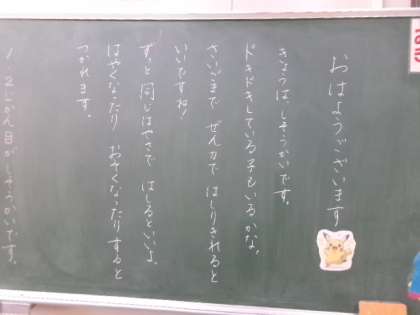 おはようございます
きょうは、しそうかいです。
ドキドキしている子もいるかな。
さいごまで ぜん力で はしりきれると
いいですね!
ずっと同じはやさで はしるといいよ。
はやくなったり おそくなったりすると
つかれます。
1、2じかん目がしそうかいです。